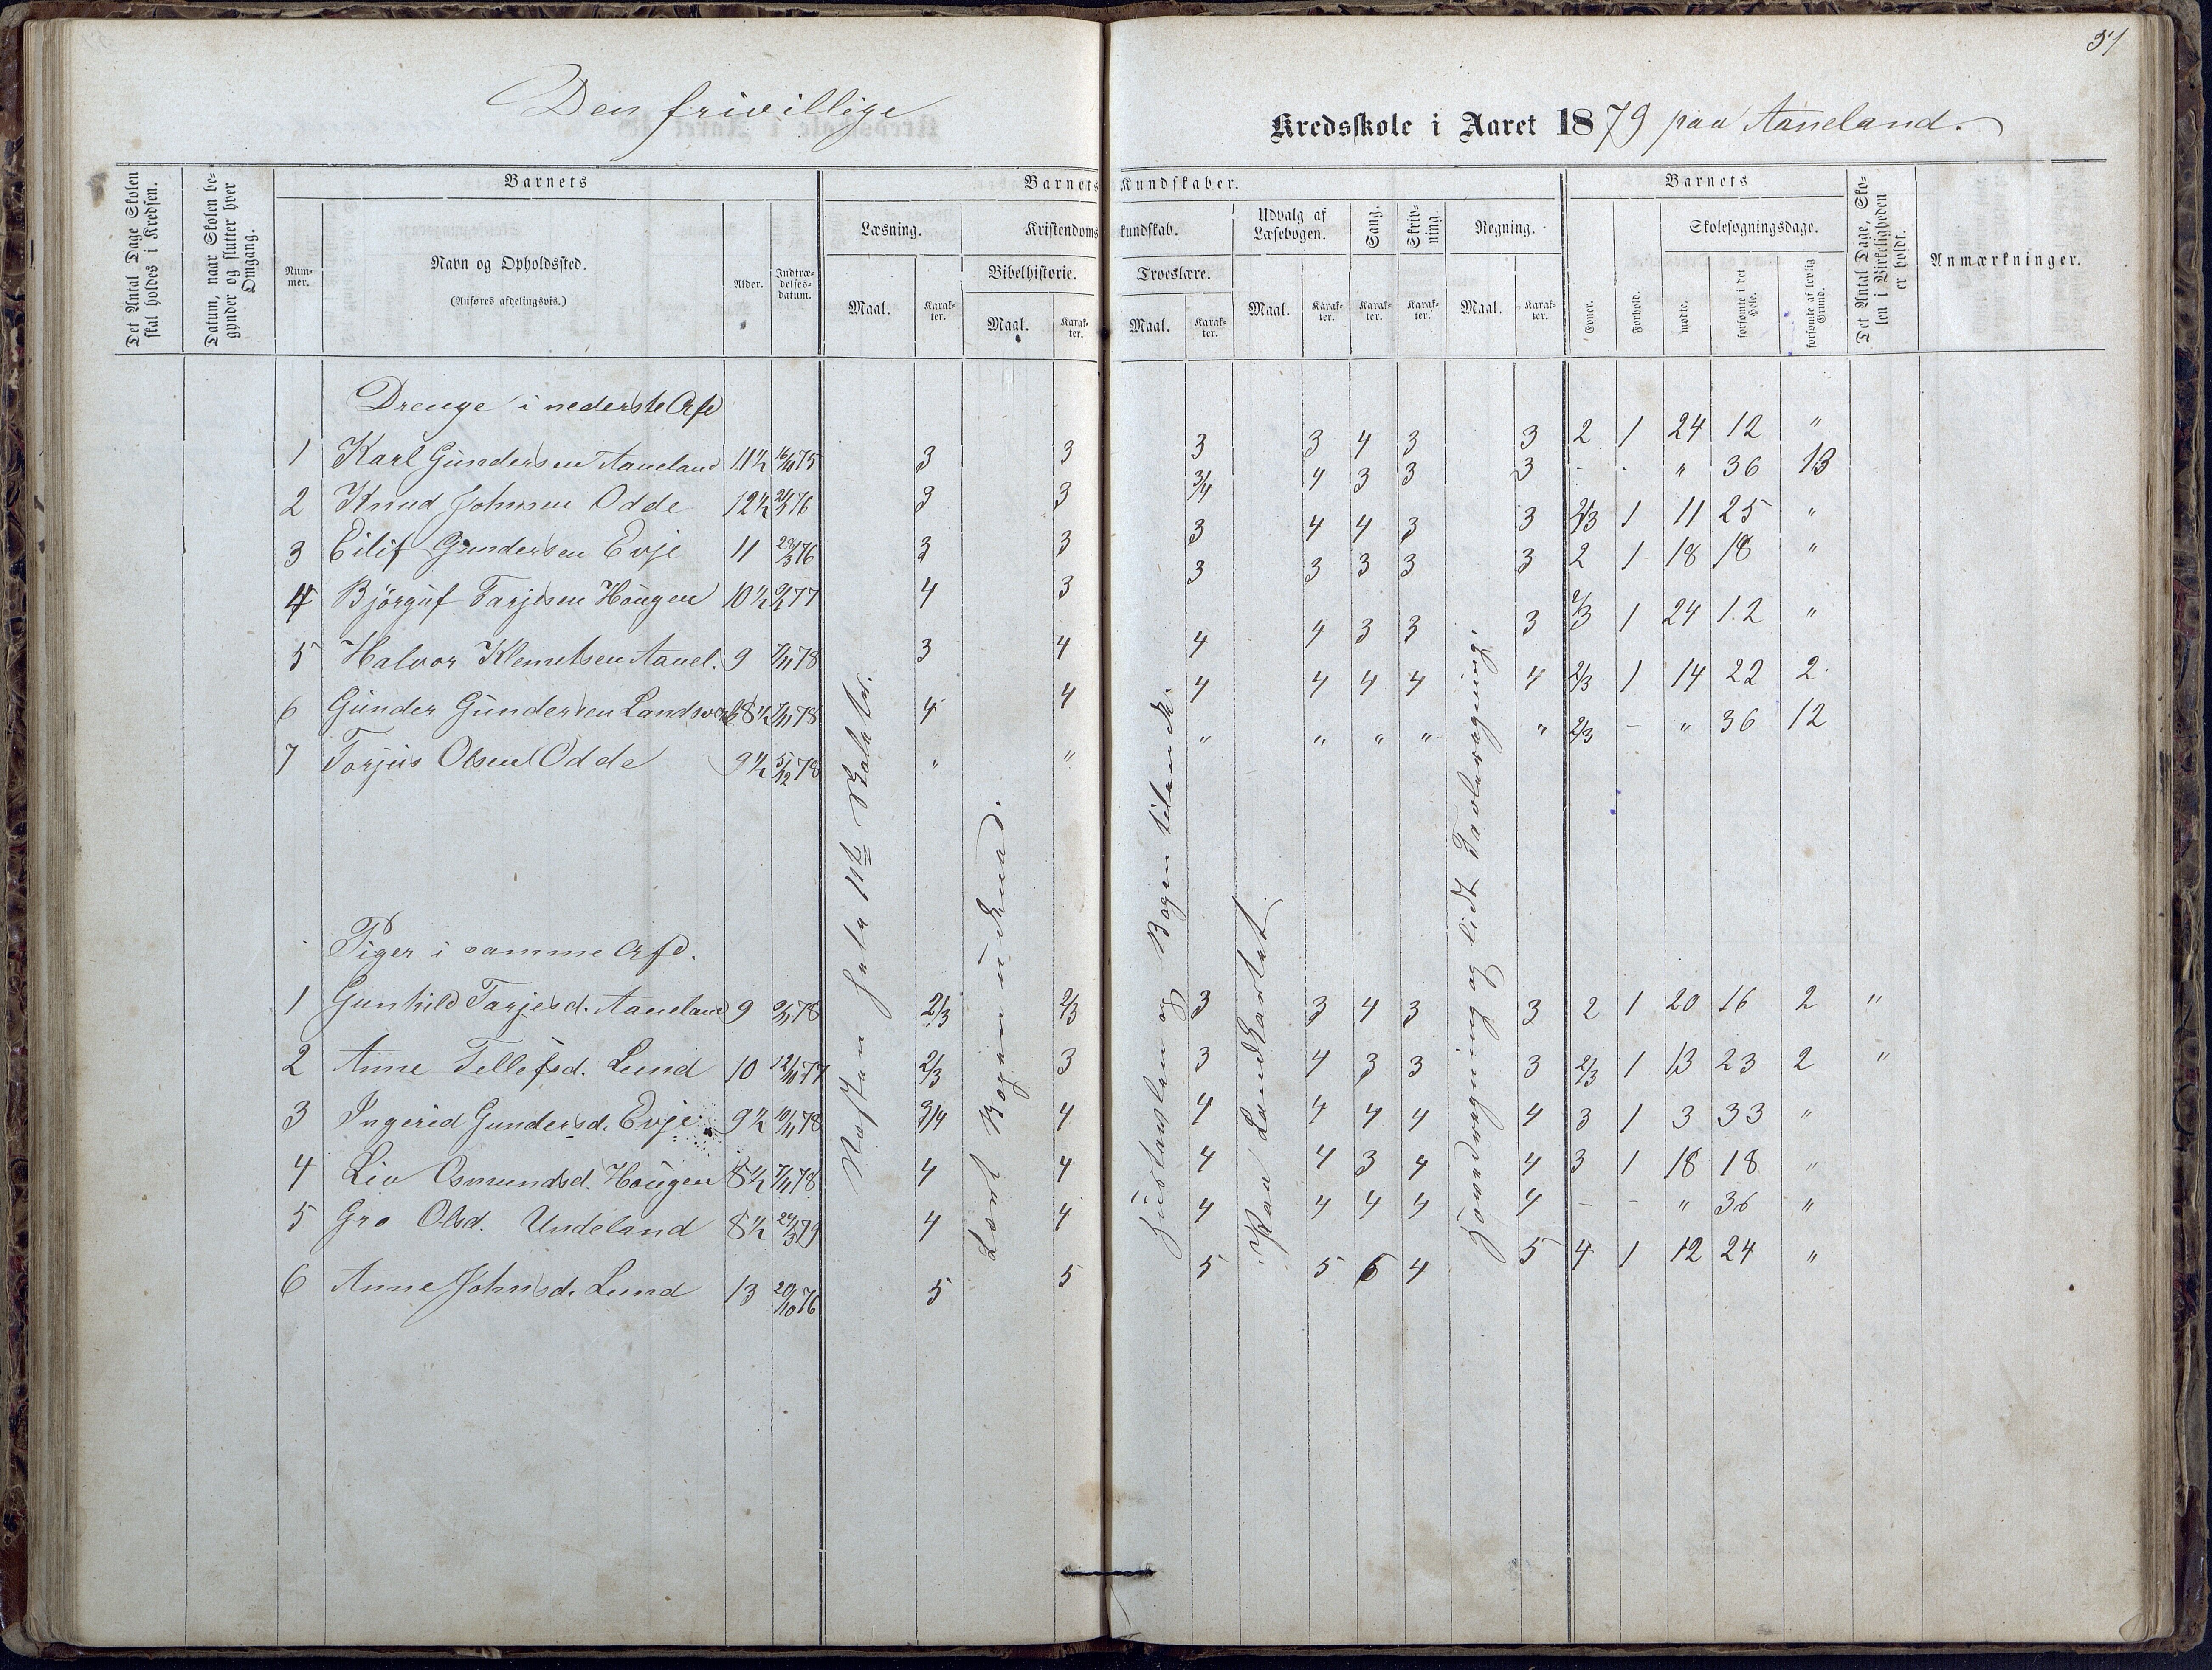 51
Den frivillige Kredsskole i Aaret 1879 paa Aaneland.
Det Antal Dage Skolen skal holdes i Kredsen.
Datum, naar Skolen begynder og slutter hver Omgang.
Barnets
Barnets Kundskaber.
Barnets
Det Antal Dage, Skolen i Virkeligheden er holdt.
Anmærkninger.
Nummer.
Navn og Opholdssted.
(Anføres afdelingsvis.)
Alder.
Indtrædelsesdatum.
Læsning.
Kristendomskundskab.
Udvalg af Læsebogen.
Sang.
Skrivning.
Regning.
Evner.
Forhold.
Skolesøgningsdage.
Bibelhistorie.
Troeslære.
Maal.
Karakter.
Maal.
Karakter.
Maal.
Karakter.
Maal.
Karakter.
Karakter.
Karakter.
Maal.
Karakter.
mødte.
forsømte i det Hele.
forsømte af lovlig Grund.
Drenge i nederste Afd
1 Karl Gundersen Aaneland 11½ 16/10 75 3 3 3 3 4 3 3 2 1 24 12 "
2 Knud Johnsen Odde 12½ 76 3 3 3/4 4 3 3 3 - - " 36 13
3 Eilif Gundersen Evje 11 76 3 3 3 4 4 3 3 2/3 1 11 25 "
4 Björguf Tarjesen Hougen 10½ 77 4 3 3 3 3 3 3 2 1 18 18 "
5 Halvor Klemetsen Aanel. 9 7/11 78 3 4 4 4 3 3 3 2/3 1 24 12 "
6 Gunder Gundersen 8½ 7/11 78 4 4 4 4 4 4 4 2/3 1 14 22 2
7 Torjus Olsen Odde 9½ 5/12 78 " " " " " " " 2/3 - " 36 12
Piger i samme Afd.
1 Gunhild Tarjesd. Aaneland 9 78 2/3 2/3 3 3 4 3 3 2 1 20 16 2 "
2 Anne Tellefsd. Lund 10 12/10 77 2/3 3 3 4 3 3 3 2/3 1 13 23 2 "
3 Ingerid Gundersd. Evje 9½ 10/11 78 3/4 4 4 4 4 4 4 3 1 3 33 "
4 Liv Osmundsd. Hougen 8½ 7/11 78 4 4 4 4 3 4 4 3 1 18 18 "
5 Gro Olsd. Undeland 8½ 24/3 79 4 4 4 4 4 4 4 - - " 36 "
6 Anne Johnsd. Lund 13 20/10 76 5 5 5 5 6 4 5 4 1 12 24 "
Næsten hele 11te
Læst Bogen
og Bogen tilende.
Paa Landkartet
og lidt Tavleregning.